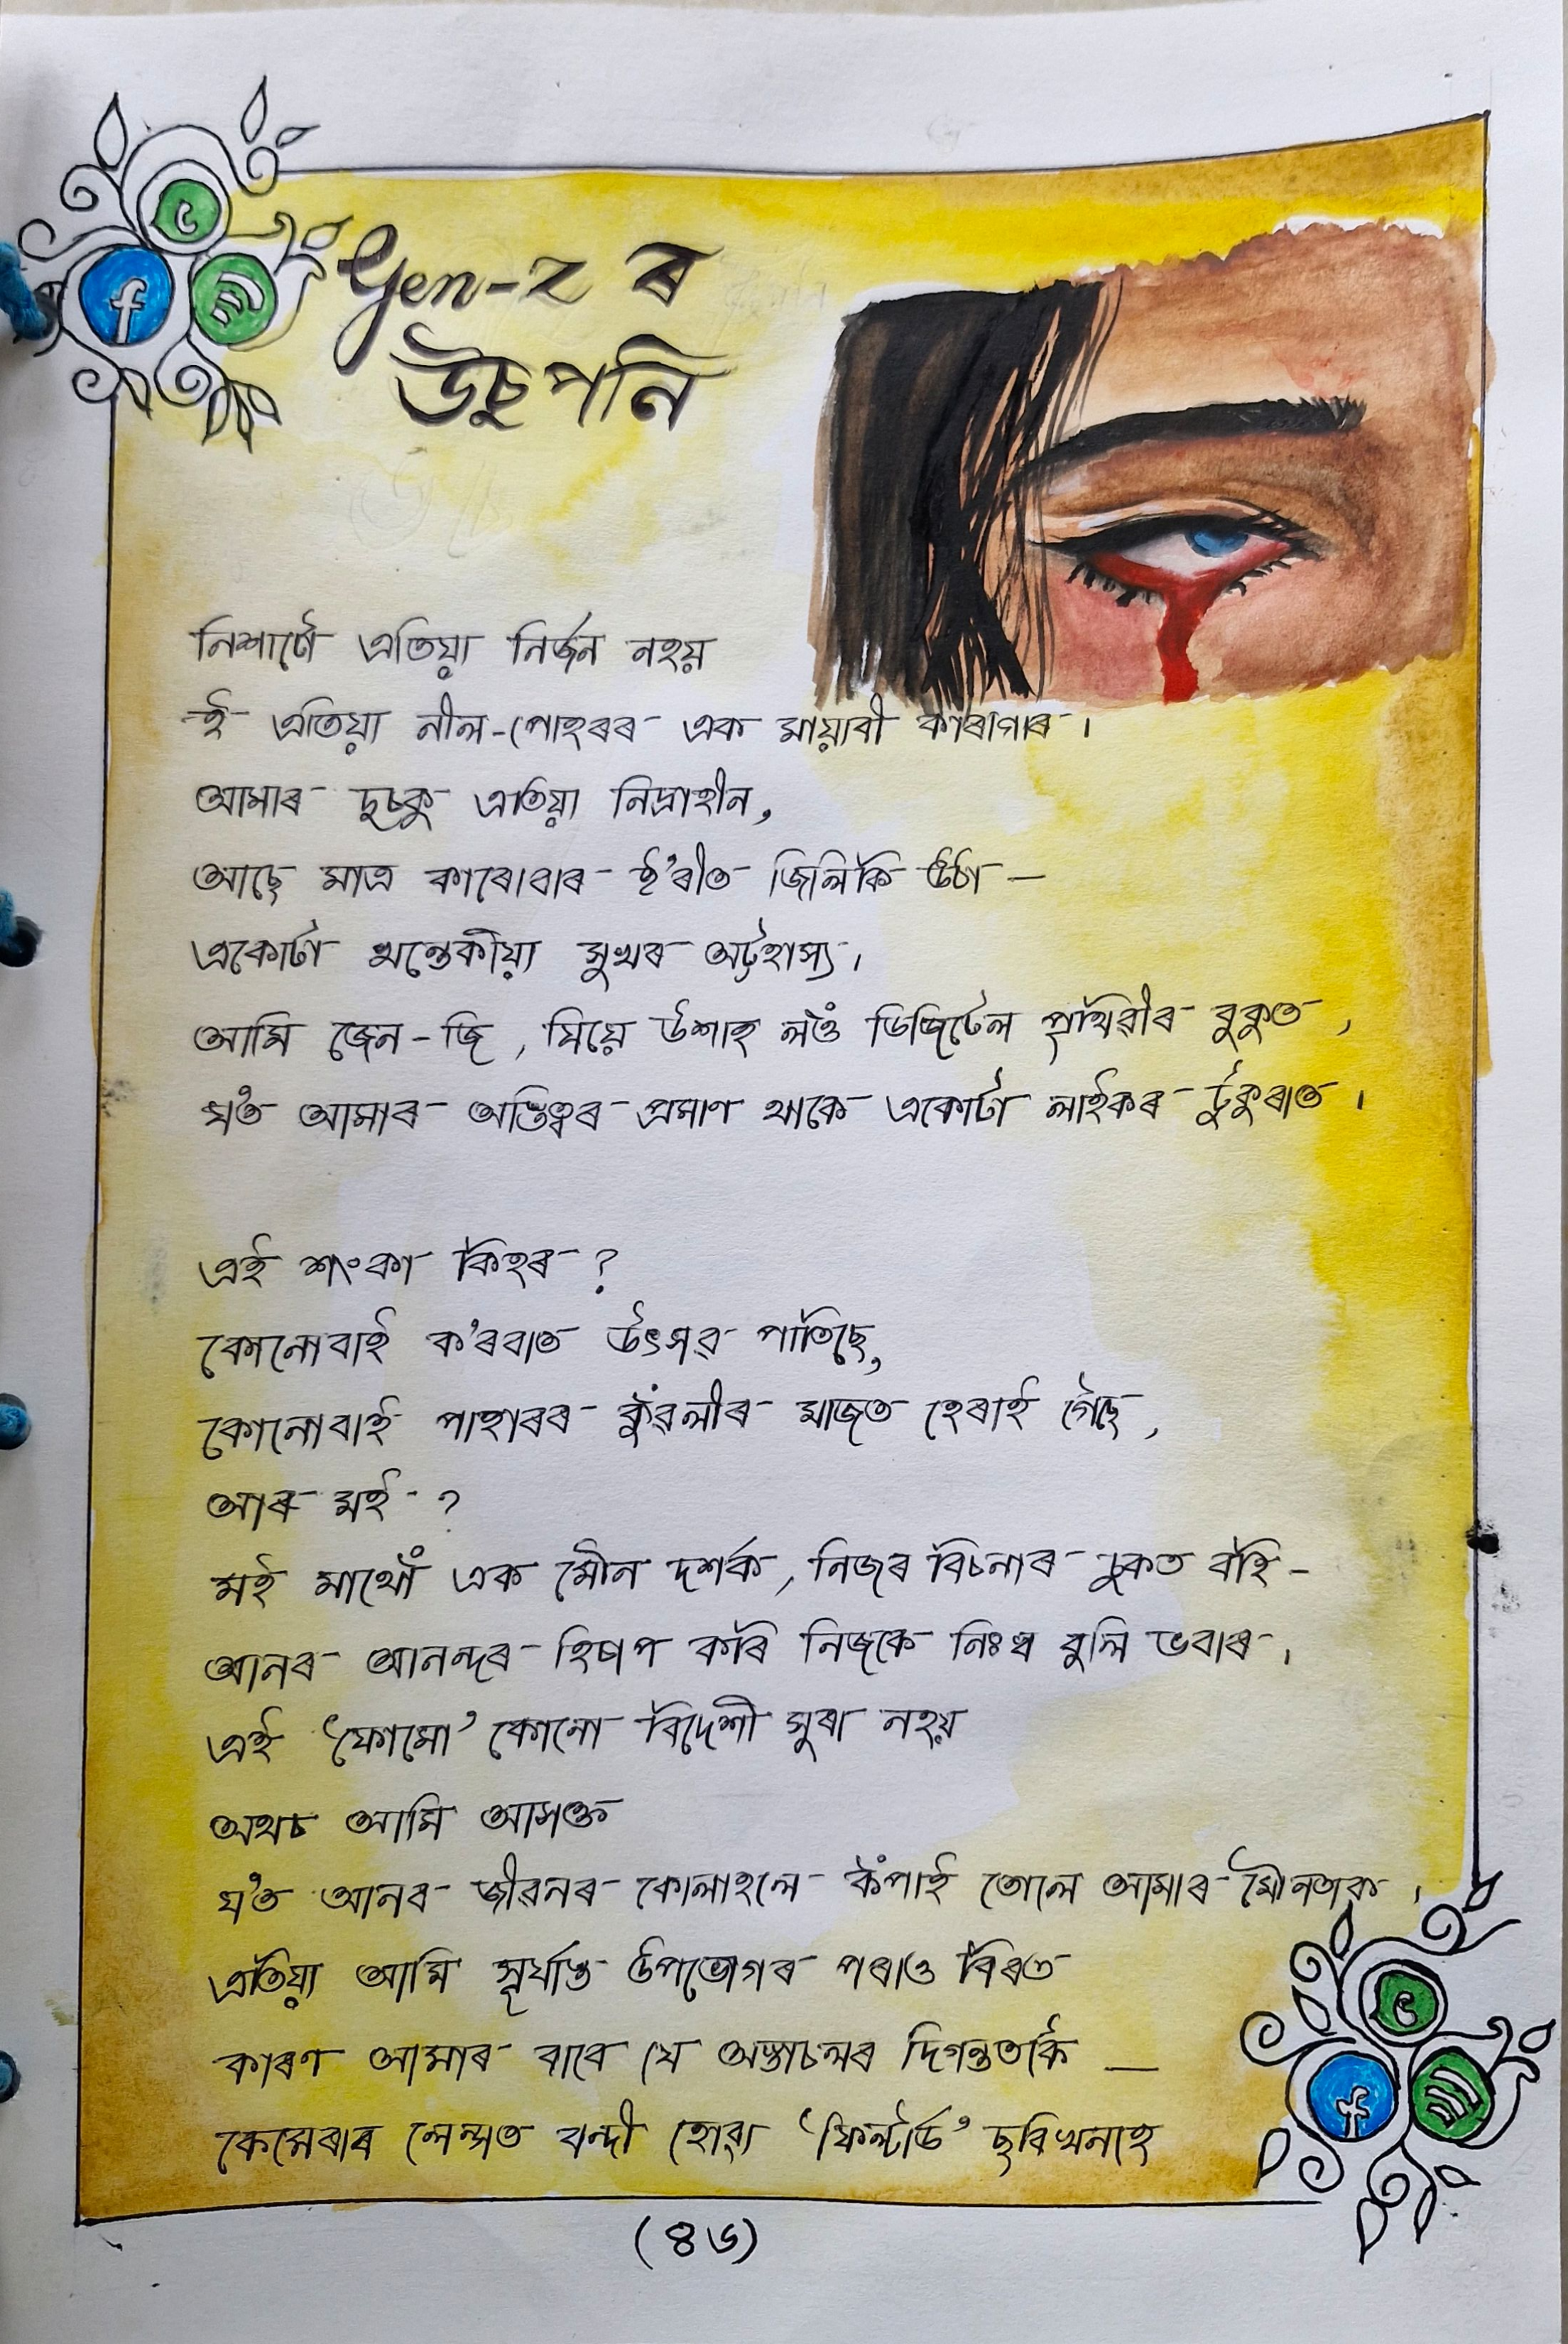 Gen-z ৰ
উচুপনি
নিশাটো এতিয়া নিৰ্জন নহয়
ই এতিয়া নীল-পোহৰৰ এক মায়াবী কাৰাগাৰ।
আমাৰ দুচকু এতিয়া নিদ্ৰাহীন,
আছে মাত্ৰ কাৰোবাৰ ষ্ট'ৰীত জিলিকি উঠা —
একোটা খন্তেকীয়া সুখৰ অট্টহাস্য।
আমি জেন-জি, যিয়ে উশাহ লওঁ ডিজিটেল পৃথিৱীৰ বুকুত,
য'ত আমাৰ অস্তিত্বৰ প্ৰমাণ থাকে একোটা লাইকৰ টুকুৰাত।
এই শংকা কিহৰ?
কোনোবাই ক'ৰবাত উৎসৱ পাতিছে,
কোনোবাই পাহাৰৰ কুঁৱলীৰ মাজত হেৰাই গৈছে,
আৰু মই?
মই মাথোঁ এক মৌন দৰ্শক, নিজৰ বিচনাৰ চুকত বহি -
আনৰ আনন্দৰ হিচাপ কৰি নিজকে নিঃস্ব বুলি ভবাৰ।
এই 'ফোমো' কোনো বিদেশী সুৰা নহয়
অথচ আমি আসক্ত
য'ত আনৰ জীৱনৰ কোলাহলে কঁপাই তোলে আমাৰ মৌনতাক।
এতিয়া আমি সূৰ্যাস্ত উপভোগৰ পৰাও বিৰত
কাৰণ আমাৰ বাবে যে অস্তাচলৰ দিগন্ততকৈ —
কেমেৰাৰ লেন্সত বন্দী হোৱা 'ফিল্টাৰ্ড' ছবিখনহে
(৪৬)